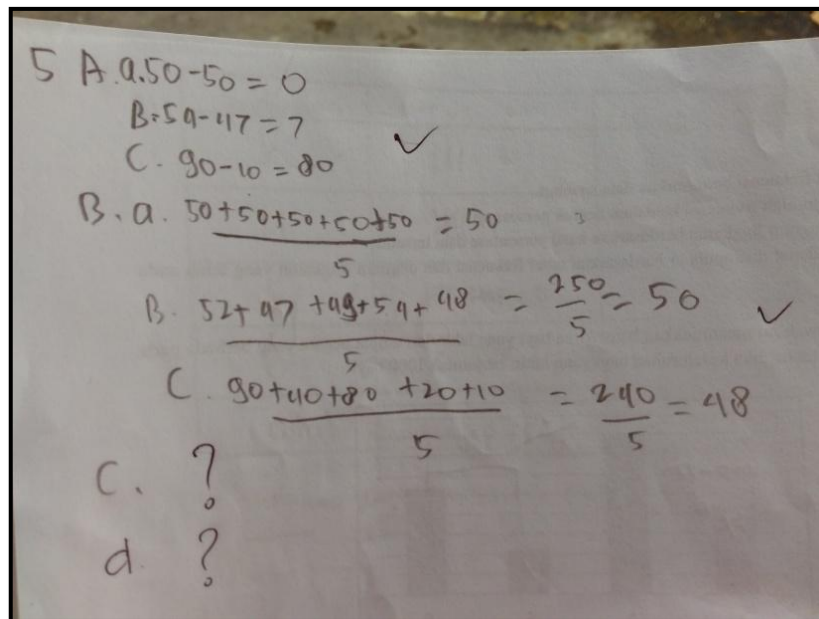 5 A. a. 50-50 = 0
B. 54-47 = 7
C. 90-10 = 80
B. a. 50+50+50+50+50 = 50
5
B. 52+47+49+54+48 = 250 = 50
5 5
C. 90+40+80+20+10 = 240 = 48
5 5
C. ?
d. ?